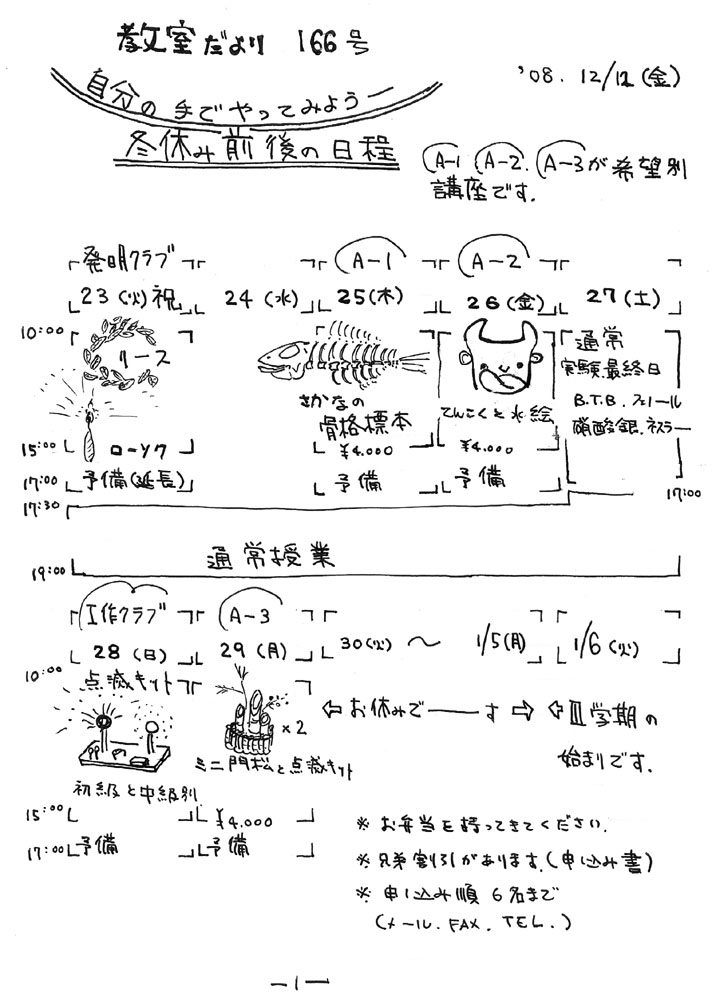 教室だより 166号
'08. 12/12 (金)
自分の手でやってみようー
冬休み前後の日程
A-1 A-2. A-3が希望別
講座です.
発明クラブ A-1 A-2
23 (火) 祝 24 (水) 25 (木) 26 (金) 27 (土)
10:00
リース
通常
実験最終日
B.T.B. フェノール
硝酸銀.ネスラー
さかなの
骨格標本
¥4.000
てんこくと水絵
¥4.000
15:00 ローソク
17:00 予備(延長) 予備 予備 17:00
17:30
通常授業
19:00
工作クラブ A-3
28 (日) 29 (月) 30(火) 〜 1/5(月) 1/6 (火)
10:00 点滅キット
×2
⇦ お休みで――す ⇨ ⇦ Ⅲ学期の
始まりです.
ミニ門松と点滅キット
初級と中級別
15:00 ¥4.000
17:00 予備 予備
※ お弁当を持ってきてください.
※ 兄弟割引があります.(申し込み書)
※ 申し込み順 6名まで
(メール. FAX. TEL.)
-1-